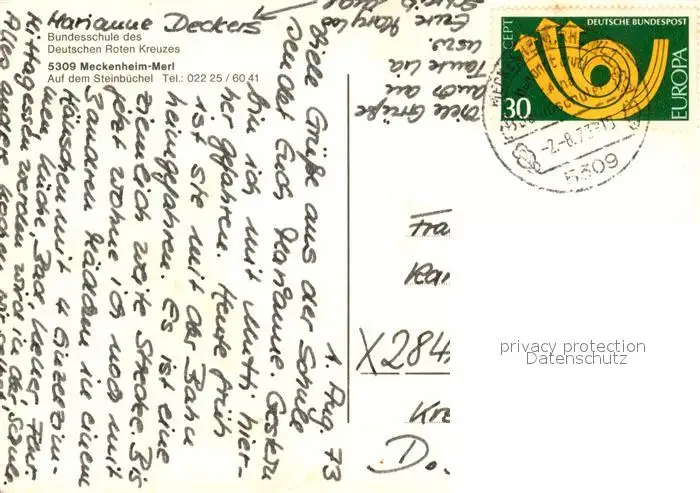 Marianne Deckers
Bundesschule des
Deutschen Roten Kreuzes
5309 Meckenheim-Merl
Auf dem Steinbüchel Tel.: 022 25 / 60 41
1. Aug. 73
Viele Grüße aus der Schule
sendet Euch Marianne. Gestern
bin ich mit Mutti hier-
her gefahren. Heute früh
ist sie mit der Bahn
heimgefahren. Es ist eine
ziemlich weite Strecke. Bis
jetzt wohne ich noch mit
3 anderen Mädchen in einem
Häuschen mit 4 Einzelzim-
mern, Küche, Bad, kleiner Flur
Mittagessen werden wir in der Schule.
Alles andere machen wir selber.
Viele Grüße
auch an
Tante Lia
usw.
Eure Mary Lou
DEUTSCHE BUNDESPOST
EUROPA
CEPT
30
-2.-8.73
5309
X284
Kre
D.
privacy protection
Datenschutz